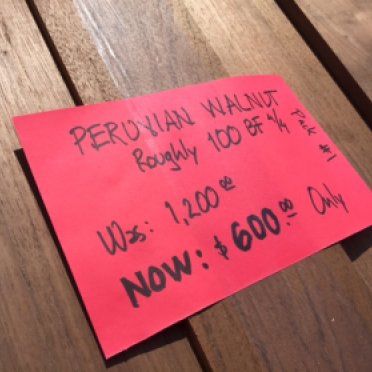 PERUVIAN WALNUT
Roughly 100 BF 4/4
Pack #1
Was: 1,200.00
NOW: $600.00 Only